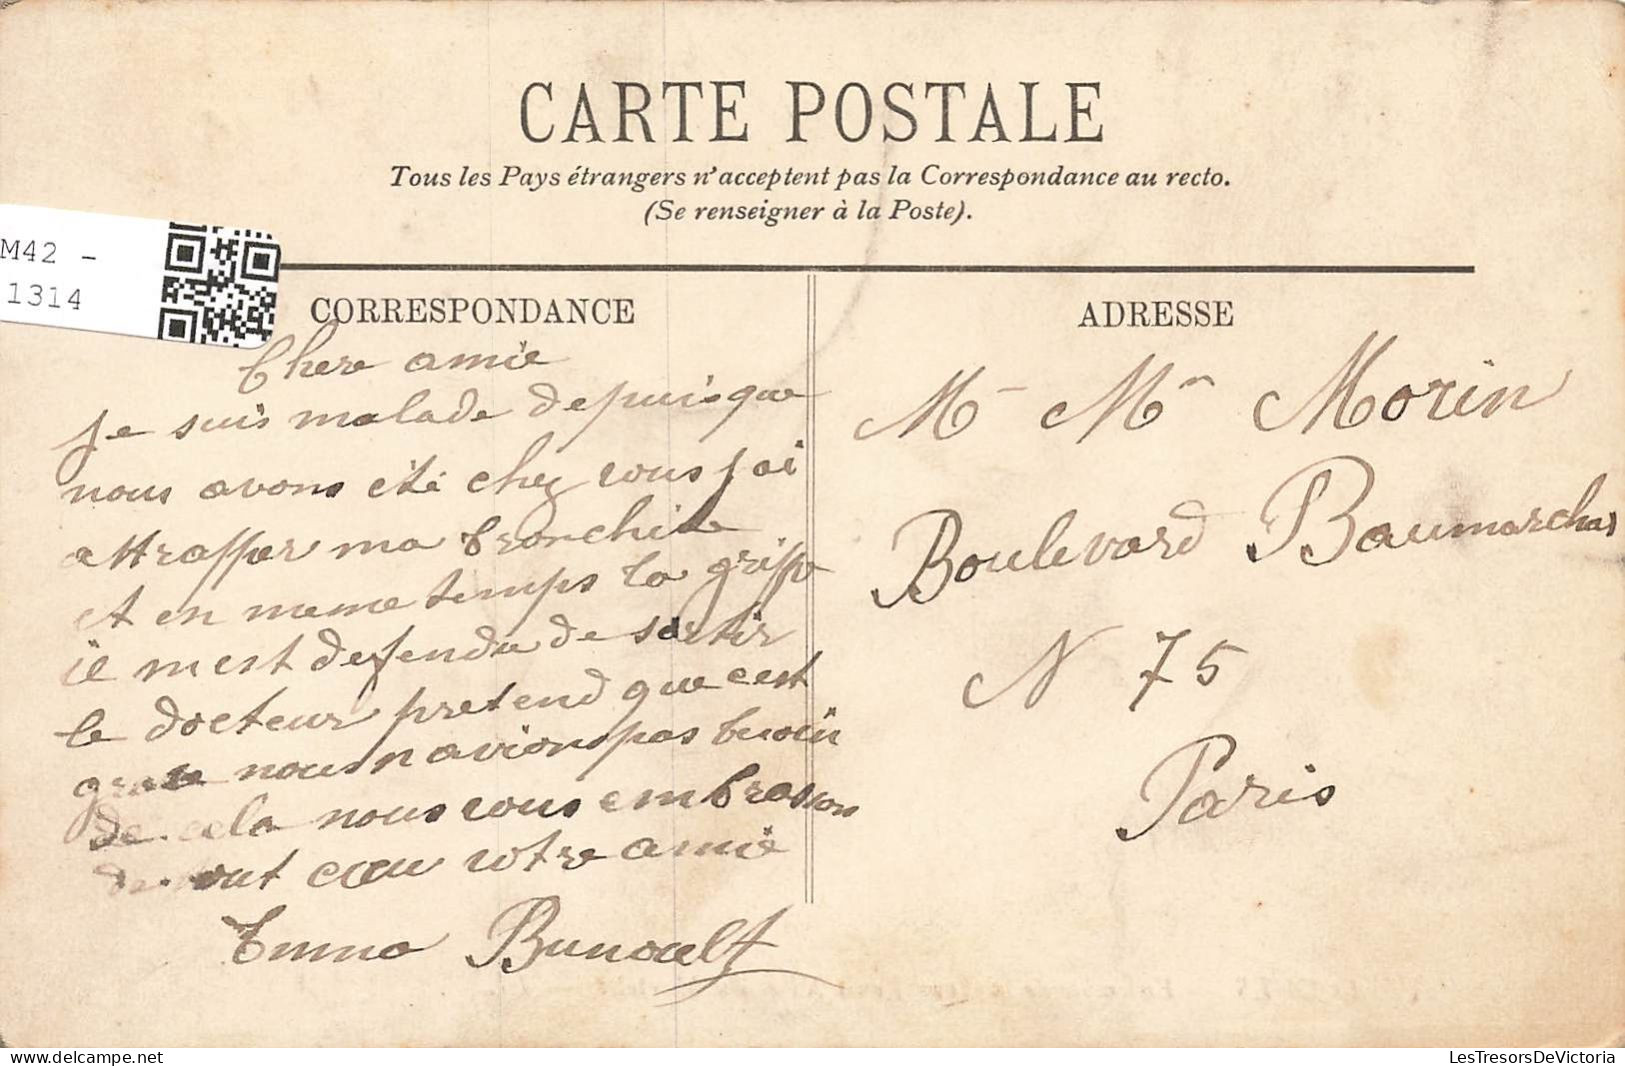 CARTE POSTALE
Tous les Pays étrangers n'acceptent pas la Correspondance au recto.
(Se renseigner à la Poste).
M42 -
1314
CORRESPONDANCE
Chere amie
je suis malade depuis que
nous avons été chez vous j ai
attrapper ma bronchite
et en meme temps la grippe
il m est defendu de sortir
le docteur pretend que c est
grave nous n avions pas besoin
de cela nous vous embrasson
de tout cœu votre amie
Emma Bunoult
ADRESSE
M - Mm Morin
Boulevard Baumarchas
N 75
Paris
delcampe.net/collections/TVC
LesTresorsDeVictoria